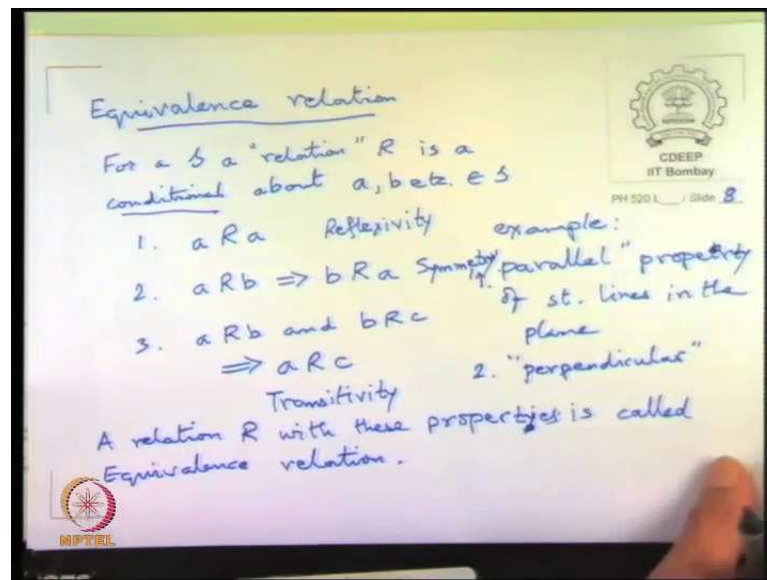 Equivalence relation
CDEEP
IIT Bombay
PH 520 L__ / Slide 8
For a S a "relation" R is a
conditional about a, b etc. ∈ S
1. a R a Reflexivity
2. a R b ⇒ b R a Symmetry
3. a R b and b R c
⇒ a R c
Transitivity
example:
1. "parallel" property
of st. lines in the
plane
2. "perpendicular"
A relation R with these properties is called
Equivalence relation.
NPTEL